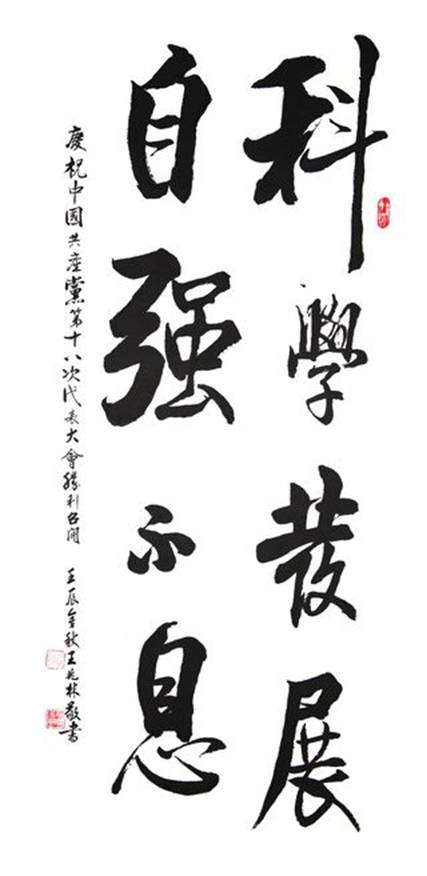 科學發展
自强不息
慶祝中国共産黨第十八次代表大會勝利召開
壬辰金秋王兆林敬書